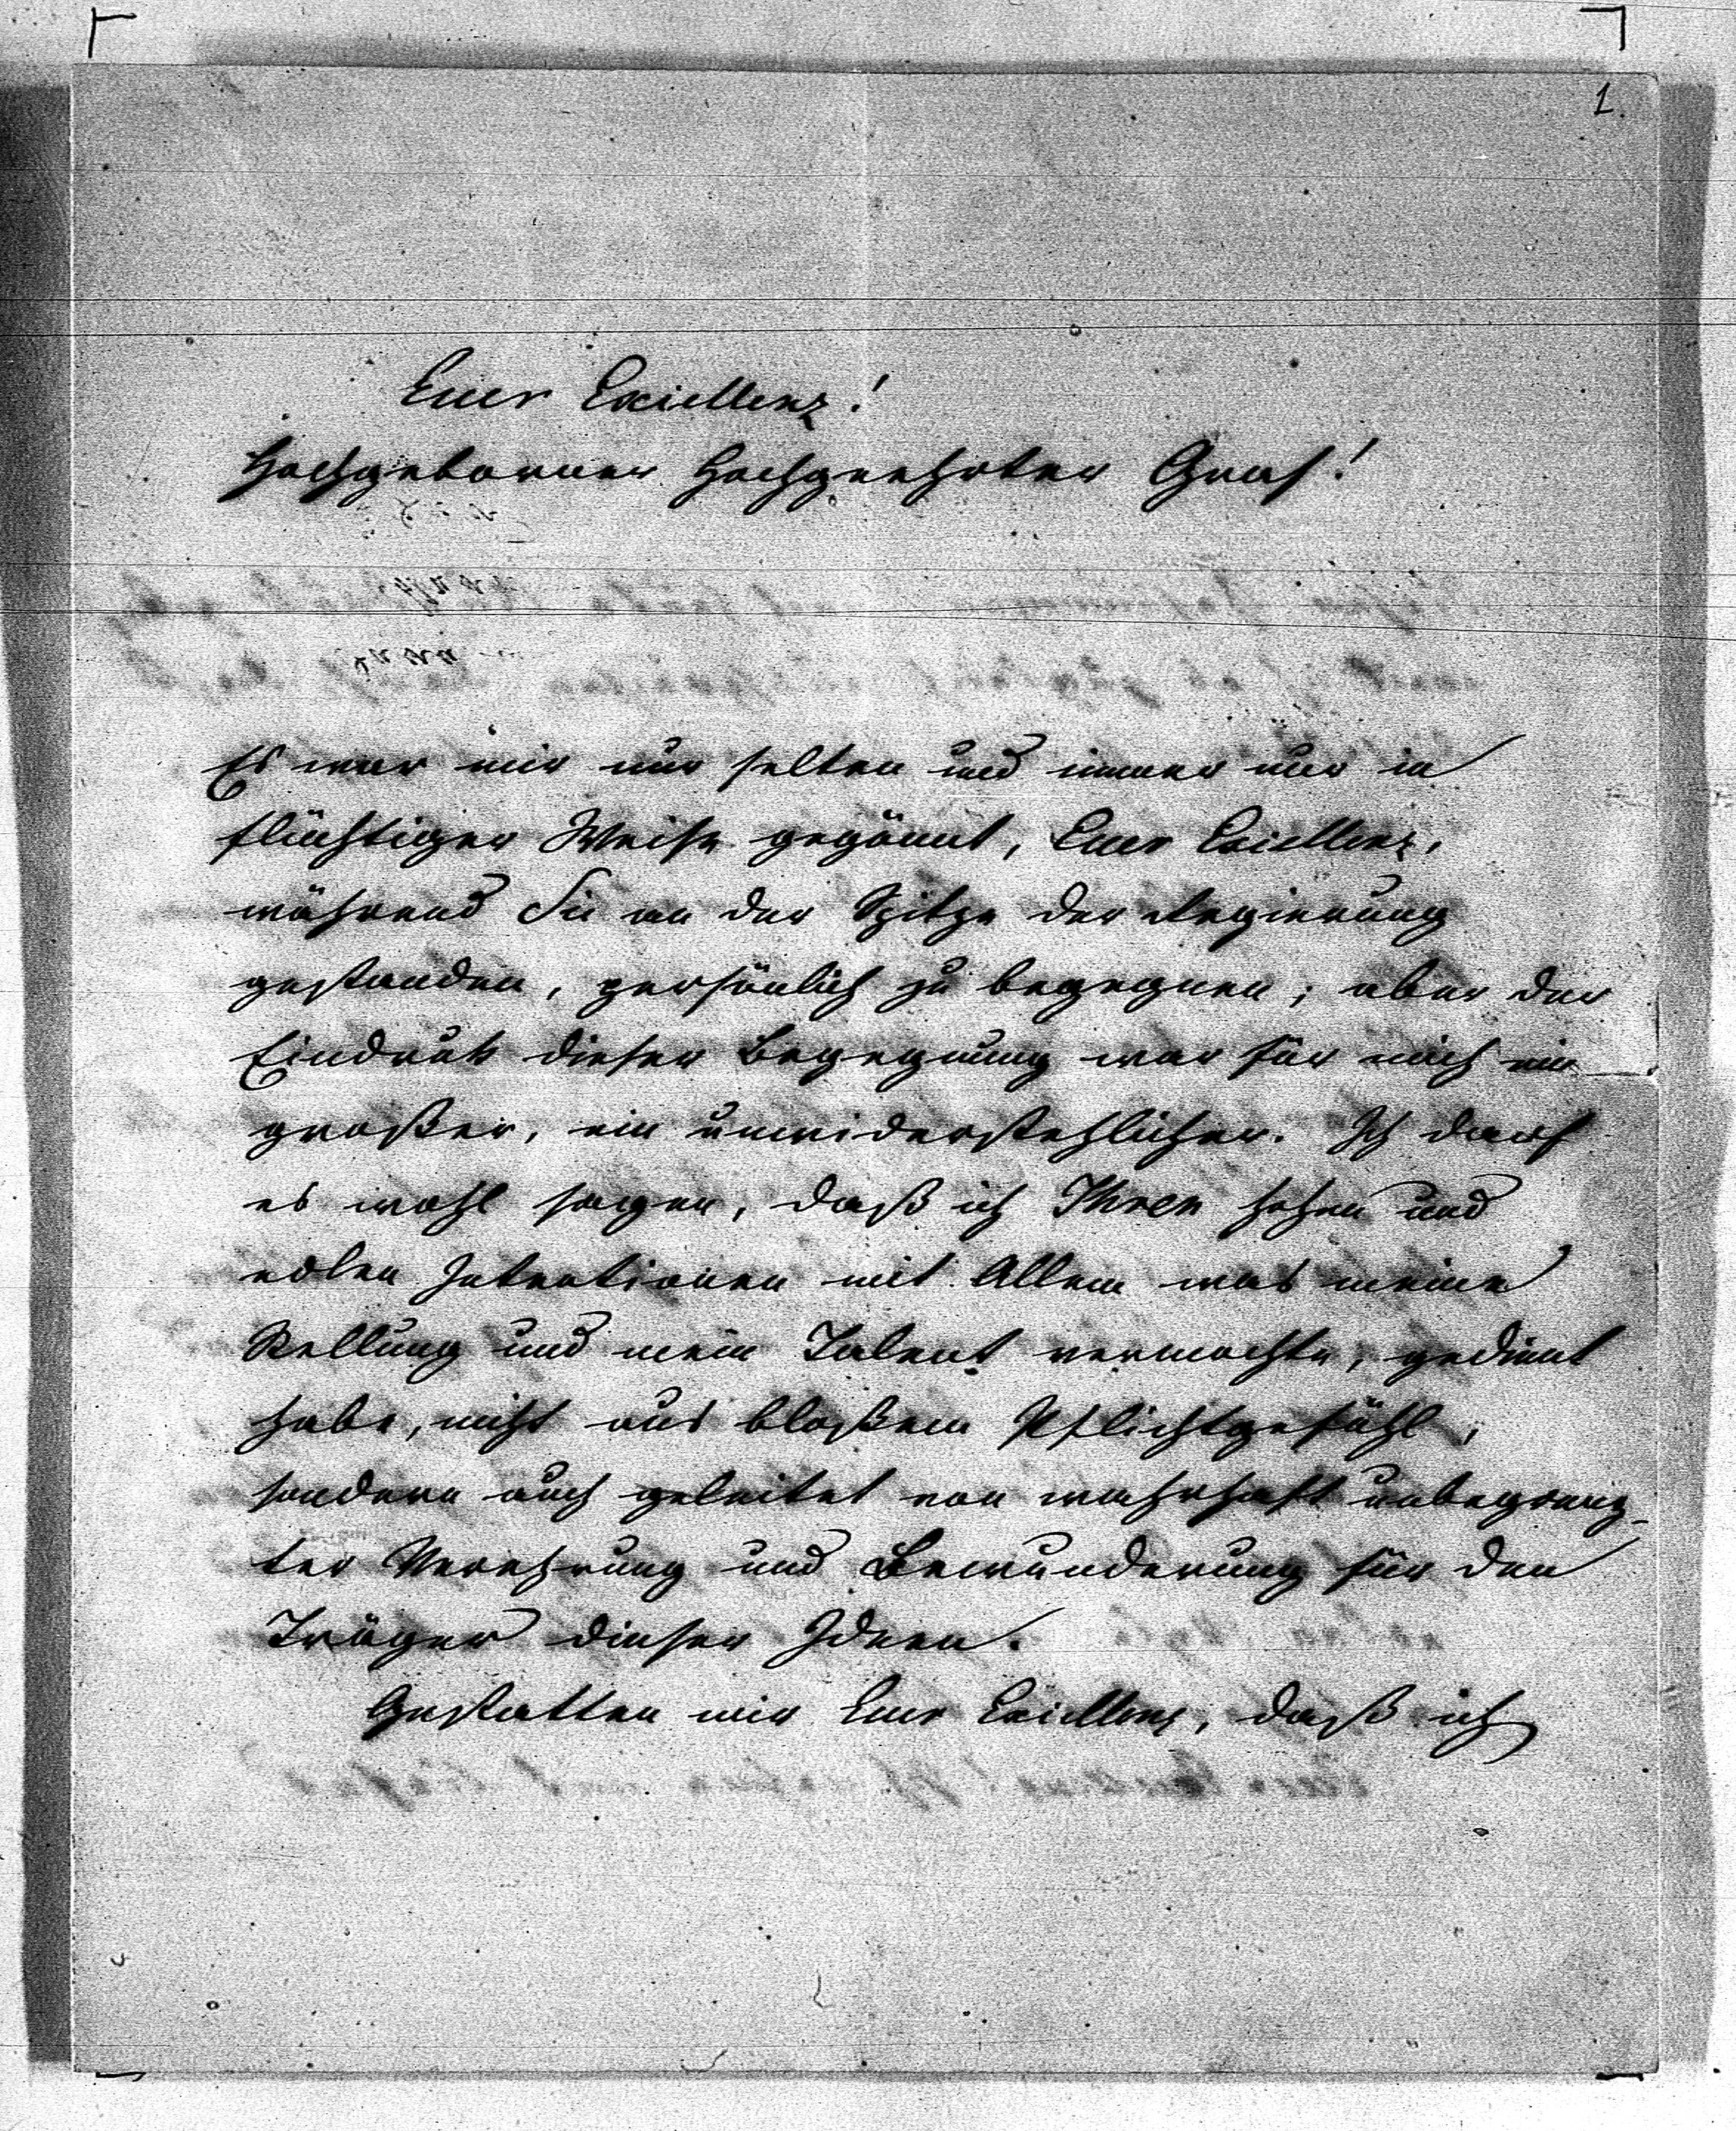 1.
Euer Excellenz!
Hochgeborner Hochgeehrter Graf!
Es war mir nur selten und immer nur in
flüchtiger Weise gegönnt, Euer Excellenz,
während Sie an der Spitze der Regierung
gestanden, persönlich zu begegnen; aber der
Eindruk dieser Begegnung war für mich ein
großer, ein unwiderstehlicher. Ich darf
es wohl sagen, daß ich Ihren hohen und
edlen Intentionen mit Allem was meine
Stellung und mein Talent vermochte, gedient
habe, nicht aus bloßem Pflichtgefühl,
sondern auch geleitet von wahrhaft unbegrenz-
ter Verehrung und Bewunderung für den
Träger dieser Ideen.
Gestatten mir Euer Excellenz, daß ich